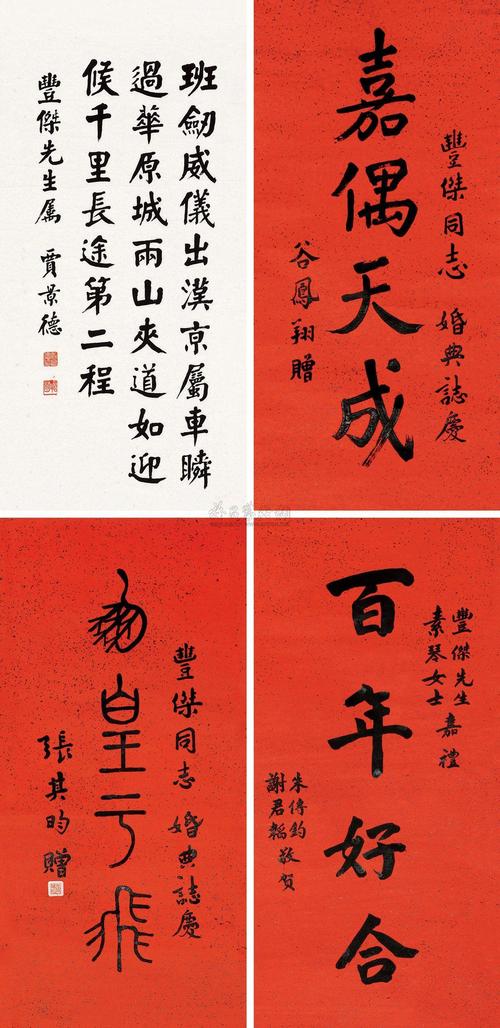 班劒威儀出漢京屬車瞬
過華原城兩山夾道如迎
候千里長途第二程
豐傑先生屬 賈景德
豐傑同志 婚典誌慶
嘉偶天成
谷鳳翔贈
豐傑同志 婚典誌慶
鳳皇于飛
張其昀贈
豐傑先生
素琴女士
嘉禮
百年好合
朱傳鈞
謝君韜
敬賀